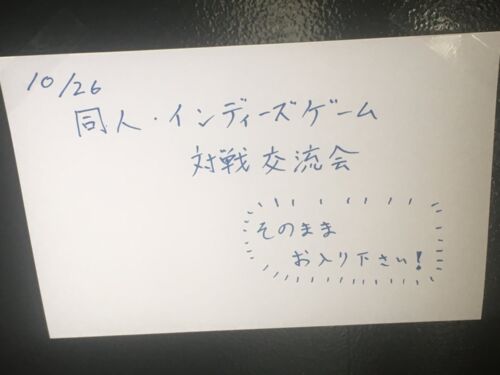 10/26
同人・インディーズゲーム
対戦交流会
そのまま
お入り下さい!